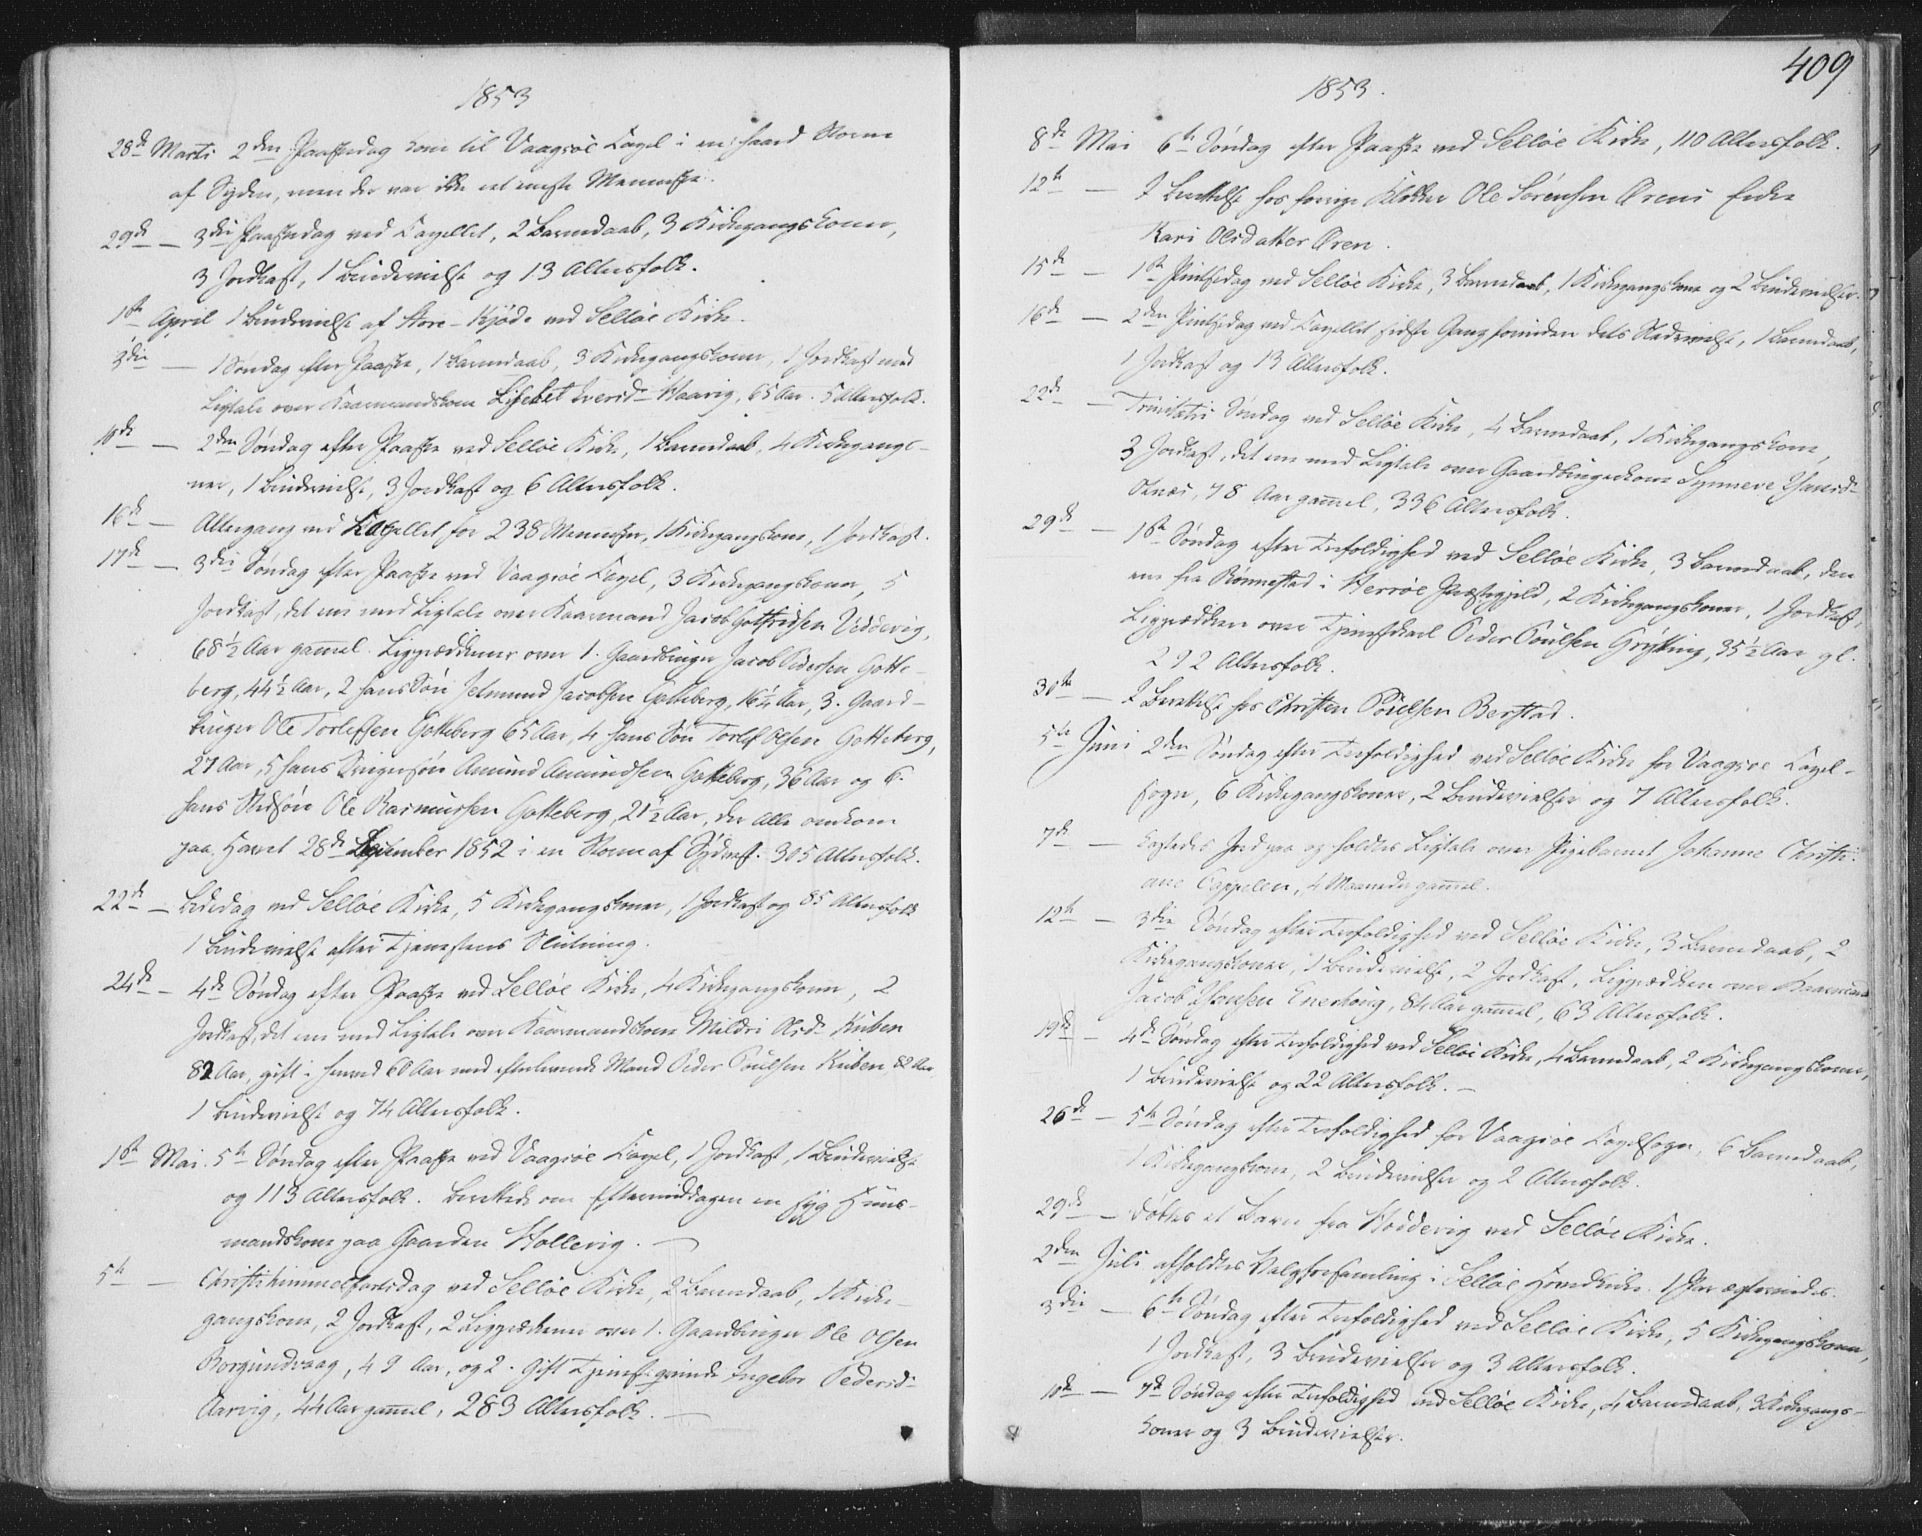 1853
28de Marts 2den Paaskedag kom til Vaagsøe Capel i en haard Storm
af Syden, men der var ikke et eneste Menneske.
29de — 3die Paaskedag ved Capellet, 2 Barnedaab, 3 Kirkegangskoner,
3 Jordkast, 1 Brudevielse og 13 Altersfolk.
1ste April 1 Brudevielse af Store-Kjøde ved Selløe Kirke.
3die — 1 Søndag efter Paaske, 1 Barnedaab, 3 Kirkegangskoner, 1 Jordkast med
Ligtale over Kaarmandskone Lisebet Iversd. Haavig, 65 Aar. 5 Altersfolk.
10de — 2den Søndag efter Paaske ved Selløe Kirke, 1 Barnedaab, 4 Kirkegangs-
ner, 1 Brudevielse, 3 Jordkast og 6 Altersfolk.
16de — Altergang ved Capellet for 238 Mennesker, 1 Kirkegangskone, 1 Jordkast.
17de — 3die Søndag efter Paaske ved Vaagsøe Capel, 3 Kirkegangskoner, 5
Jordkast, det ene med Ligtale over Kaarmand Jacob Gotfridsen Vedvevig,
68½ Aar gammel. Ligprædikener over 1. Gaardbruger Jacob Pedersen Gotte-
berg, 44½ Aar, 2 hans Søn Jetmund Jacobsen Gotteberg, 16¼ Aar, 3. Gaard-
bruger Ole Torlefsen Gotteberg 65 Aar, 4 hans Søn Torlef Olsen Gotteberg,
27 Aar, 5 hans Svigersøn Amund Amundsen Gotteberg, 36 Aar og 6.
hans Stedsøn Ole Rasmussen Gotteberg, 21½ Aar, der alle omkom
paa Havet 28de September 1852 i en Storm af Sydvest. 305 Altersfolk.
22de — Bededag ved Selløe Kirke, 5 Kirkegangskoner, 1 Jordkast og 85 Altersfolk
1 Brudevielse efter Tjenestens Slutning.
24de — 4de Søndag efter Paaske ved Selløe Kirke, 4 Kirkegangskoner, 2
Jordkast, det ene med Ligtale over Kaarmandskone Mildri Olsd. Kuben
82 Aar, gift i henved 60 Aar med efterlevende Mand Peder Poulsen Kuben 82 Aar
1 Brudevielse og 74 Altersfolk.
1ste Mai. 5te Søndag efter Paaske ved Vaagsøe Capel, 1 Jordkast, 1 Brudevielse
og 113 Altersfolk. Berettede om Eftermiddagen en syg Huus-
mandskone paa Gaarden Hollevig. —
5te — Christi himmelfartsdag ved Selløe Kirke, 2 Barnedaab, 1 Kirke-
gangskone, 2 Jordkast, 2 Ligprædikener over 1. Gaardbruger Ole Olsen
Borgundvaag, 49 Aar, og 2. Gift Tjenestqvinde Ingebor Pedersd.
Aarvig, 44 Aar gammel, 283 Altersfolk. —
409
1853.
8de Mai 6te Søndag efter Paaske ved Selløe Kirke, 110 Altersfolk.
12te — I Berettelse hos forrige Klokker Ole Sørensen Ørens Enke
Kari Olsdatter Øren.
15de — 1ste Pintsedag ved Selløe Kirke, 3 Barnedaab, 1 Kirkegangskone og 2 Brudevielser.
16de — 2den Pintsedag ved Capellet sidste Gang forinden dets Nedrivelse, 1 Barnedaab,
1 Jordkast og 13 Altersfolk.
22de — Trinitatis Søndag ved Selløe Kirke, 4 Barnedaab, 1 Kirkegangskone,
3 Jordkast, det ene med Ligtale over Gaardbrugerkone Synneve Hansd.
Osnæs, 78 Aar gammel, 336 Altersfolk.
29de — 1ste Søndag efter Trefoldighed ved Selløe Kirke, 3 Barnedaab, den
ene fra Rønnestad i Herrøe Præstegjeld, 2 Kirkegangskoner, 1 Jordkast,
Ligprædiken over Tjenestkarl Peder Poulsen Grytting, 35½ Aar gl.
292 Altersfolk.
30te — I Berettelse hos Christen Poulsen Berstad.
5te Juni 2den Søndag efter Trefoldighed ved Selløe Kirke for Vaagsøe Capel-
sogn, 6 Kirkegangskoner, 2 Brudevielser og 7 Altersfolk.
7de — Kastedes Jord paa og holdtes Ligtale over Pigebarnet Johanne Christi-
ane Cappelen, 4 Maaneder gammel.
12te — 3die Søndag efter Trefoldighed ved Selløe Kirke, 3 Barnedaab, 2
Kirkegangskoner, 1 Brudevielse, 2 Jordkast, Ligprædiken over Kaarmand
Jacob Hansen Enerhoug, 84 Aar gammel, 63 Altersfolk.
19de — 4de Søndag efter Trefoldighed ved Selløe Kirke, 4 Barnedaab, 2 Kirkegangskoner,
1 Brudevielse og 22 Altersfolk. —
26de — 5te Søndag efter Trefoldighed for Vaagsøe Capelsogn, 6 Barnedaab,
1 Kirkegangskone, 2 Brudevielser og 2 Altersfolk.
29de — Døbtes et Barn fra Hoddevig ved Selløe Kirke.
2den Juli afholdtes Valgforsamling i Selløe Hovedkirke. 1 Par ægteviedes.
3die — 6te Søndag efter Trefoldighed ved Selløe Kirke, 5 Kirkegangskoner,
1 Jordkast, 3 Brudevielser og 3 Altersfolk.
10de — 7de Søndag efter Trefoldighed ved Selløe Kirke, 4 Barnedaab, 3 Kirkegangs-
koner og 3 Brudevielser.